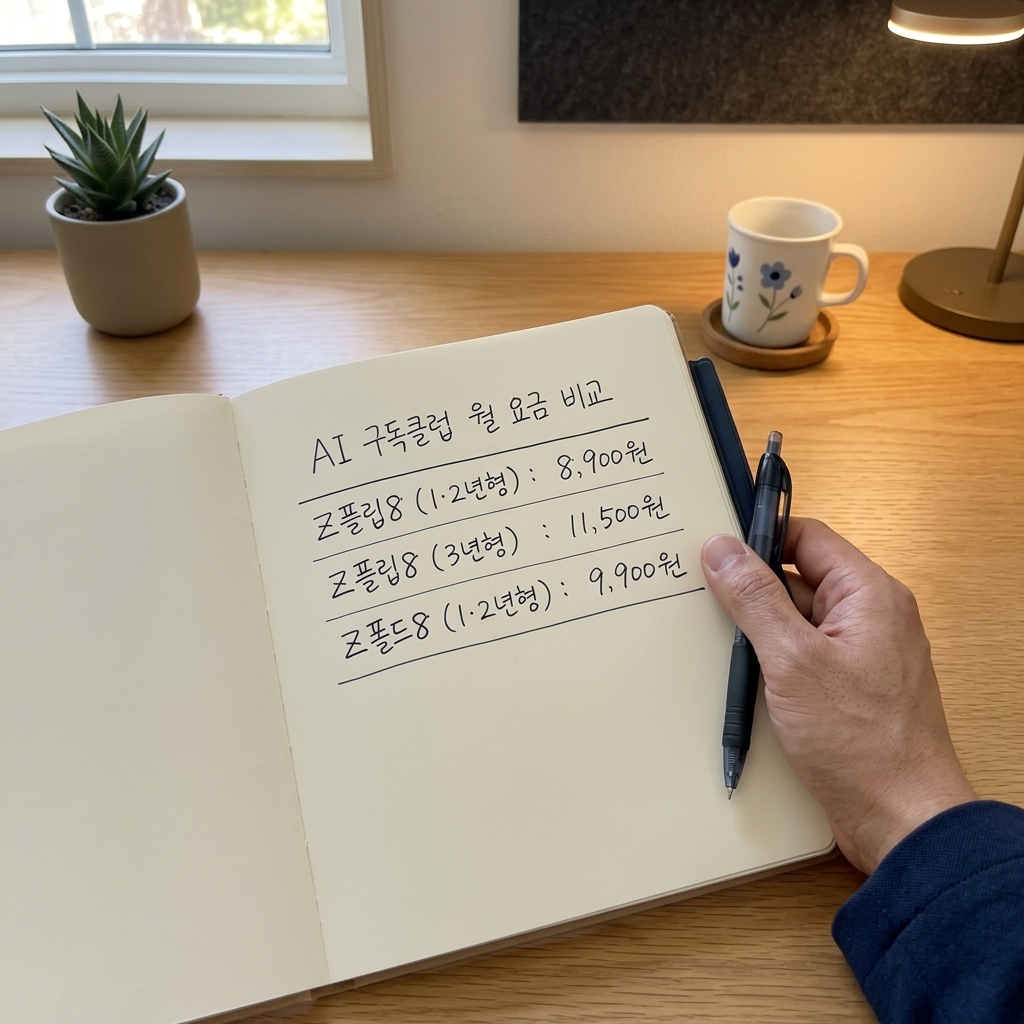 AI 구독클럽 월 요금 비교
Z플립8 (1·2년형) : 8,900원
Z플립8 (3년형) : 11,500원
Z폴드8 (1·2년형) : 9,900원